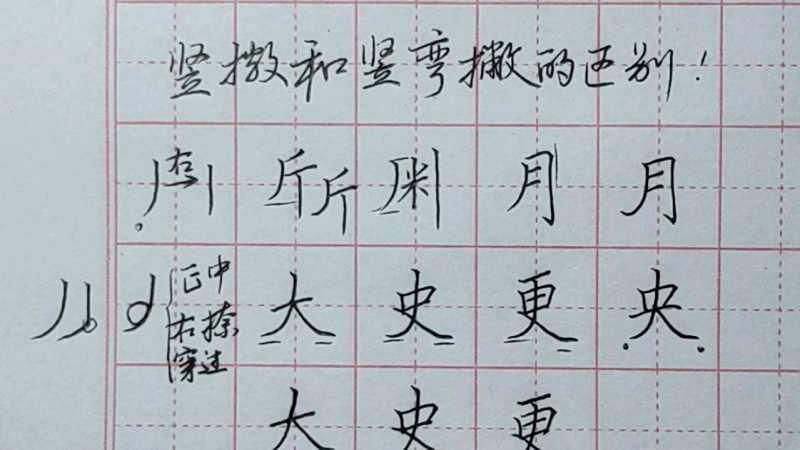 竖撇和竖弯撇的区别！
右 斤 斤 月 月
正中 大 史 更 央
右捺
穿过
大 史 更